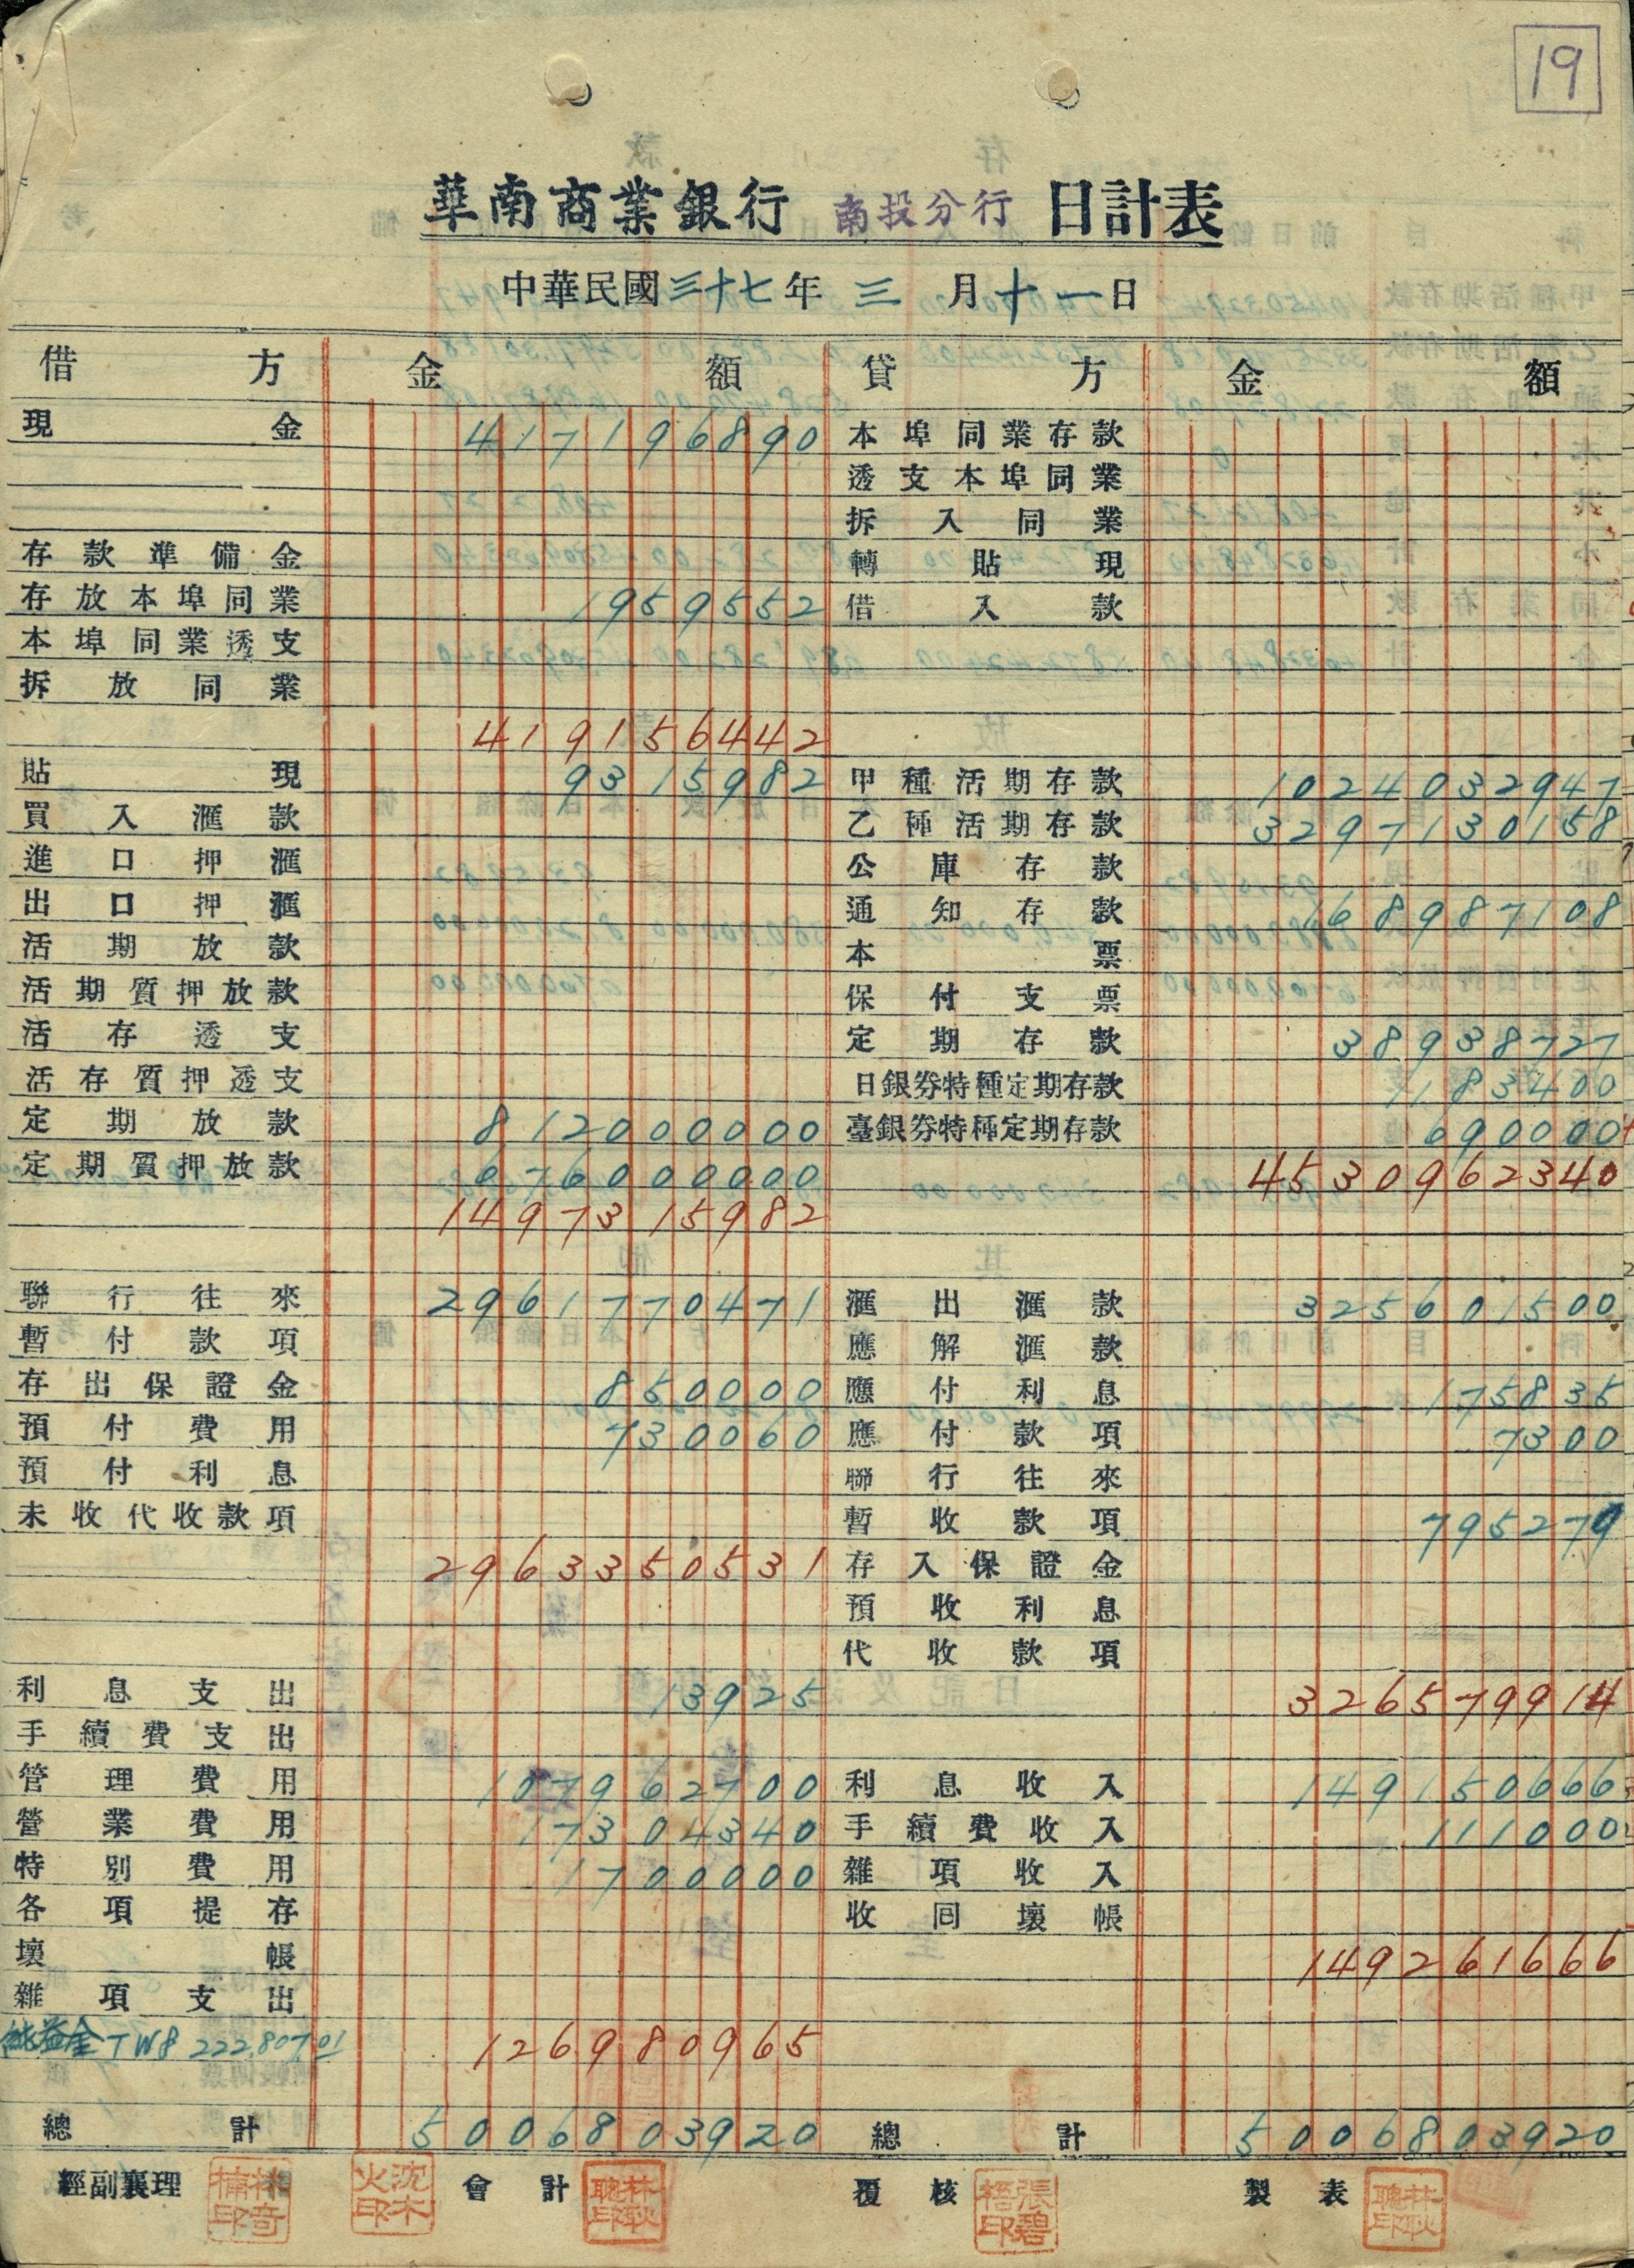 19
華南商業銀行 南投分行 日計表
中華民國三十七年 三 月十一日
借方 金額 貸方 金額
現金 417196890 本埠同業存款
透支本埠同業
拆入同業
存款準備金 轉貼現
存放本埠同業 1959552 借入款
本埠同業透支
拆放同業
419156442
貼現 9315982 甲種活期存款 1024032947
買入滙款 乙種活期存款 3297130158
進口押滙 公庫存款
出口押滙 通知存款 168987108
活期放款 本票
活期質押放款 保付支票
活存透支 定期存款 38938727
活存質押透支 日銀券特種定期存款 1183400
定期放款 812000000 臺銀券特種定期存款 690000
定期質押放款 676000000 4530962340
1497315982
聯行往來 2961770471 滙出滙款 325601500
暫付款項 應解滙款
存出保證金 850000 應付利息 175835
預付費用 730060 應付款項 7300
預付利息 聯行往來
未收代收款項 暫收款項 795279
2963350531 存入保證金
預收利息
代收款項
利息支出 13925 326579914
手續費支出
管理費用 107962700 利息收入 149150666
營業費用 17304340 手續費收入 111000
特別費用 1700000 雜項收入
各項提存 收囘壞帳
壞帳 149261666
雜項支出
純益金TW$ 222,807.01 126980965
總計 5006803920 總計 5006803920
經副襄理 會計 覆核 製表